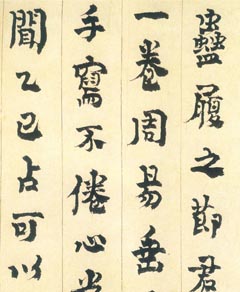 蠱履之節君
一卷周易垂
手寫不倦心
聞乙巳占可以